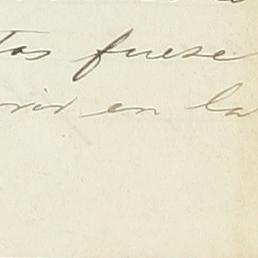 tas fuese
rir en la